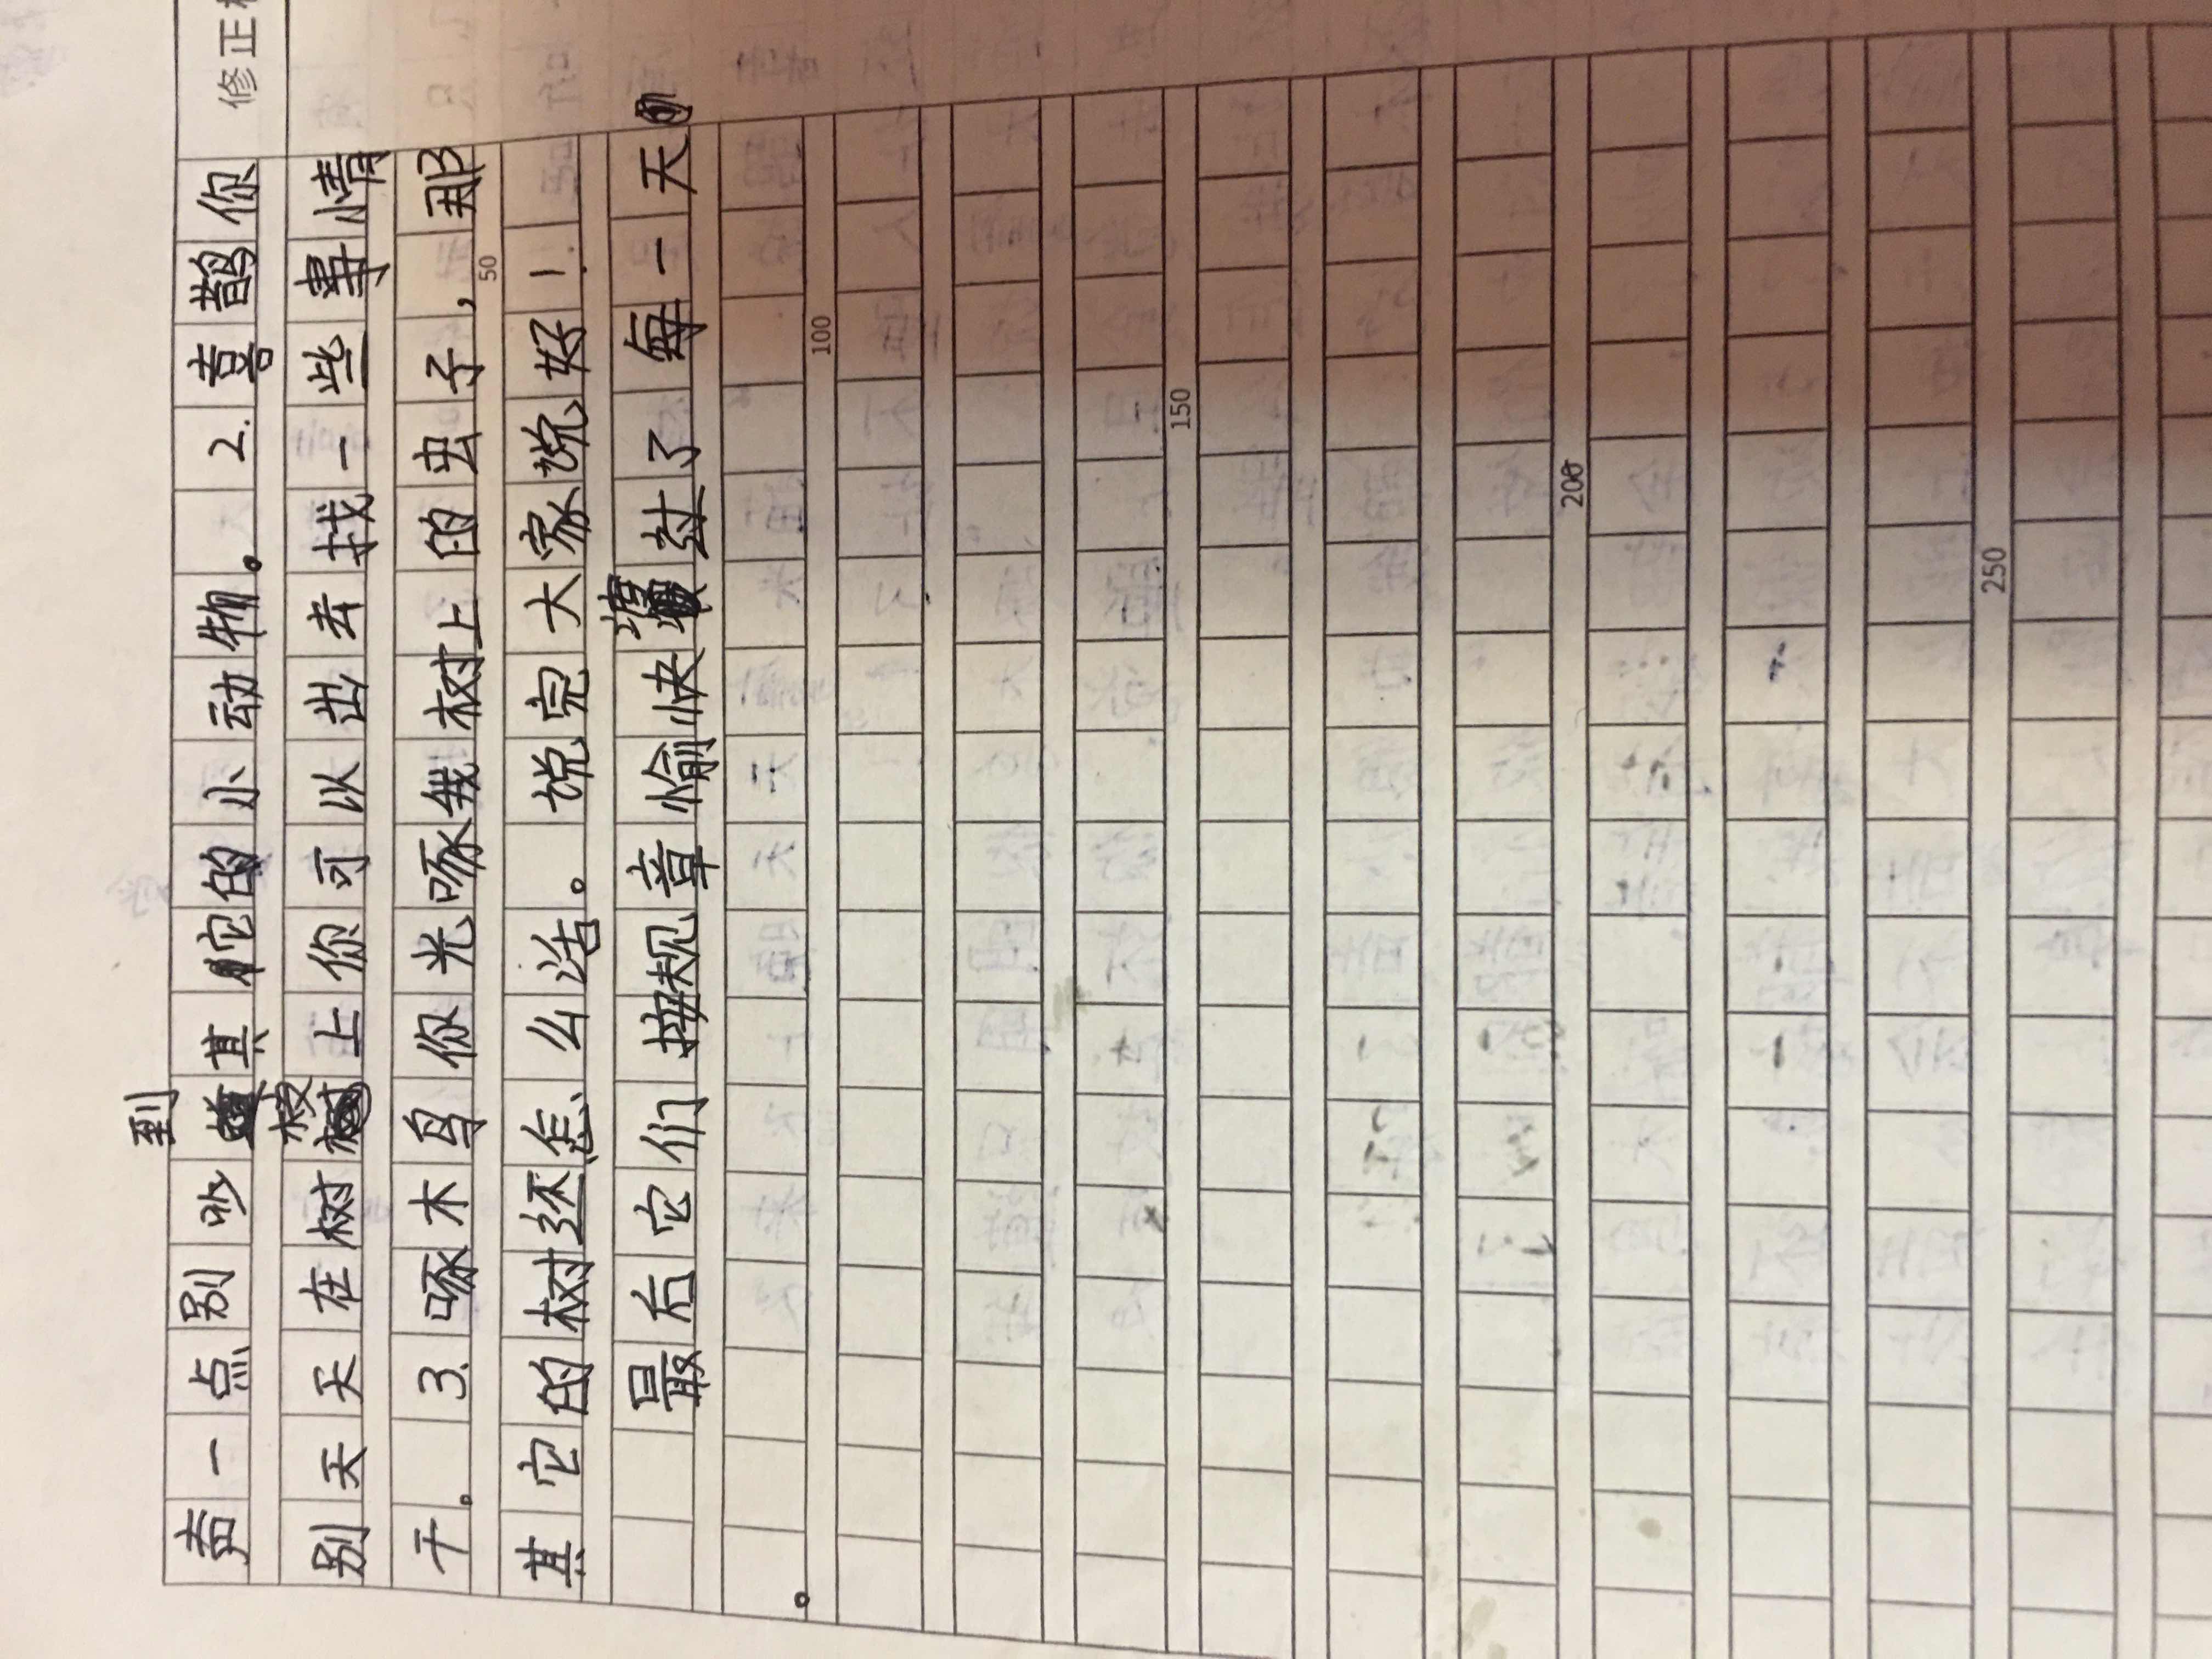 修正
声一点别吵到其它的小动物。 2.喜鹊你
别天天在树枝上你可以出去找一些事情
干。 3.啄木鸟你光啄我树上的虫子,那
50
其它的树还怎么活。 说完大家说好!
最后它们按规章愉快度过了每一天
。
100
150
200
250